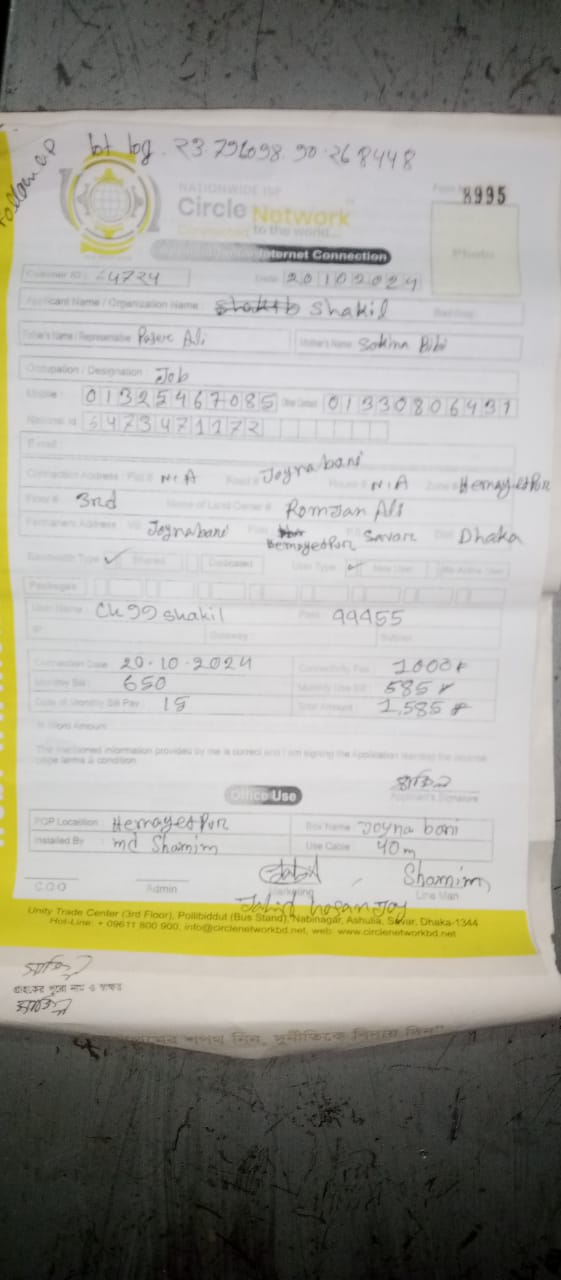 Follow up
lat log. 23.796098. 90.268448
NATIONWIDE ISP
Form No 8995
Circle Network
Connected to the world...
Internet Connection
Photo
Customer ID : 24724 Date : 20102024
Applicant Name / Organization Name : Shakil
Father's Name / Representative Ali Mother's Name Sokina Bibi
Occupation / Designation : Job
Mobile : 01325467085 01330806431
National Id 5473471172
E-mail :
Connection Address : N/A Joynabari N/A Hemayetpur
Floor # 3rd Name of Land Owner # Romjan Ali
Permanent Address Joynabari Hemayetpur Savar Dhaka
Bandwidth Type ✓ Shared Dedicated User Type ✓ New User
Packages
User Name ck99shakil Pass : 99455
IP : Gateway : Subnet
Connection Date 20-10-2024 Connectivity Fee 1000৳
Monthly Bill 650 585৳
Date of Monthly Bill Pay 15 Total Amount 1,585৳
In Word Amount
The mentioned information provided by me is correct and I am signing the Application learning the reverse
page terms & condition.
Applicant's Signature
Office Use
POP Location : Hemayetpur Box Name Joyna bari
Installed By : md Shamim Use Cable 40m
Shamim
C.O.O Admin Marketing Line Man
Jahid hosan Joy
Unity Trade Center (3rd Floor), Pollibiddut (Bus Stand), Nabinagar, Ashulia, Savar, Dhaka-1344
Hot-Line: + 09611 800 900, info@circlenetworkbd.net, web: www.circlenetworkbd.net
গ্রাহকের পুরো নাম ও স্বাক্ষর
শপথ নিন, দুর্নীতিকে বিদায় দিন"